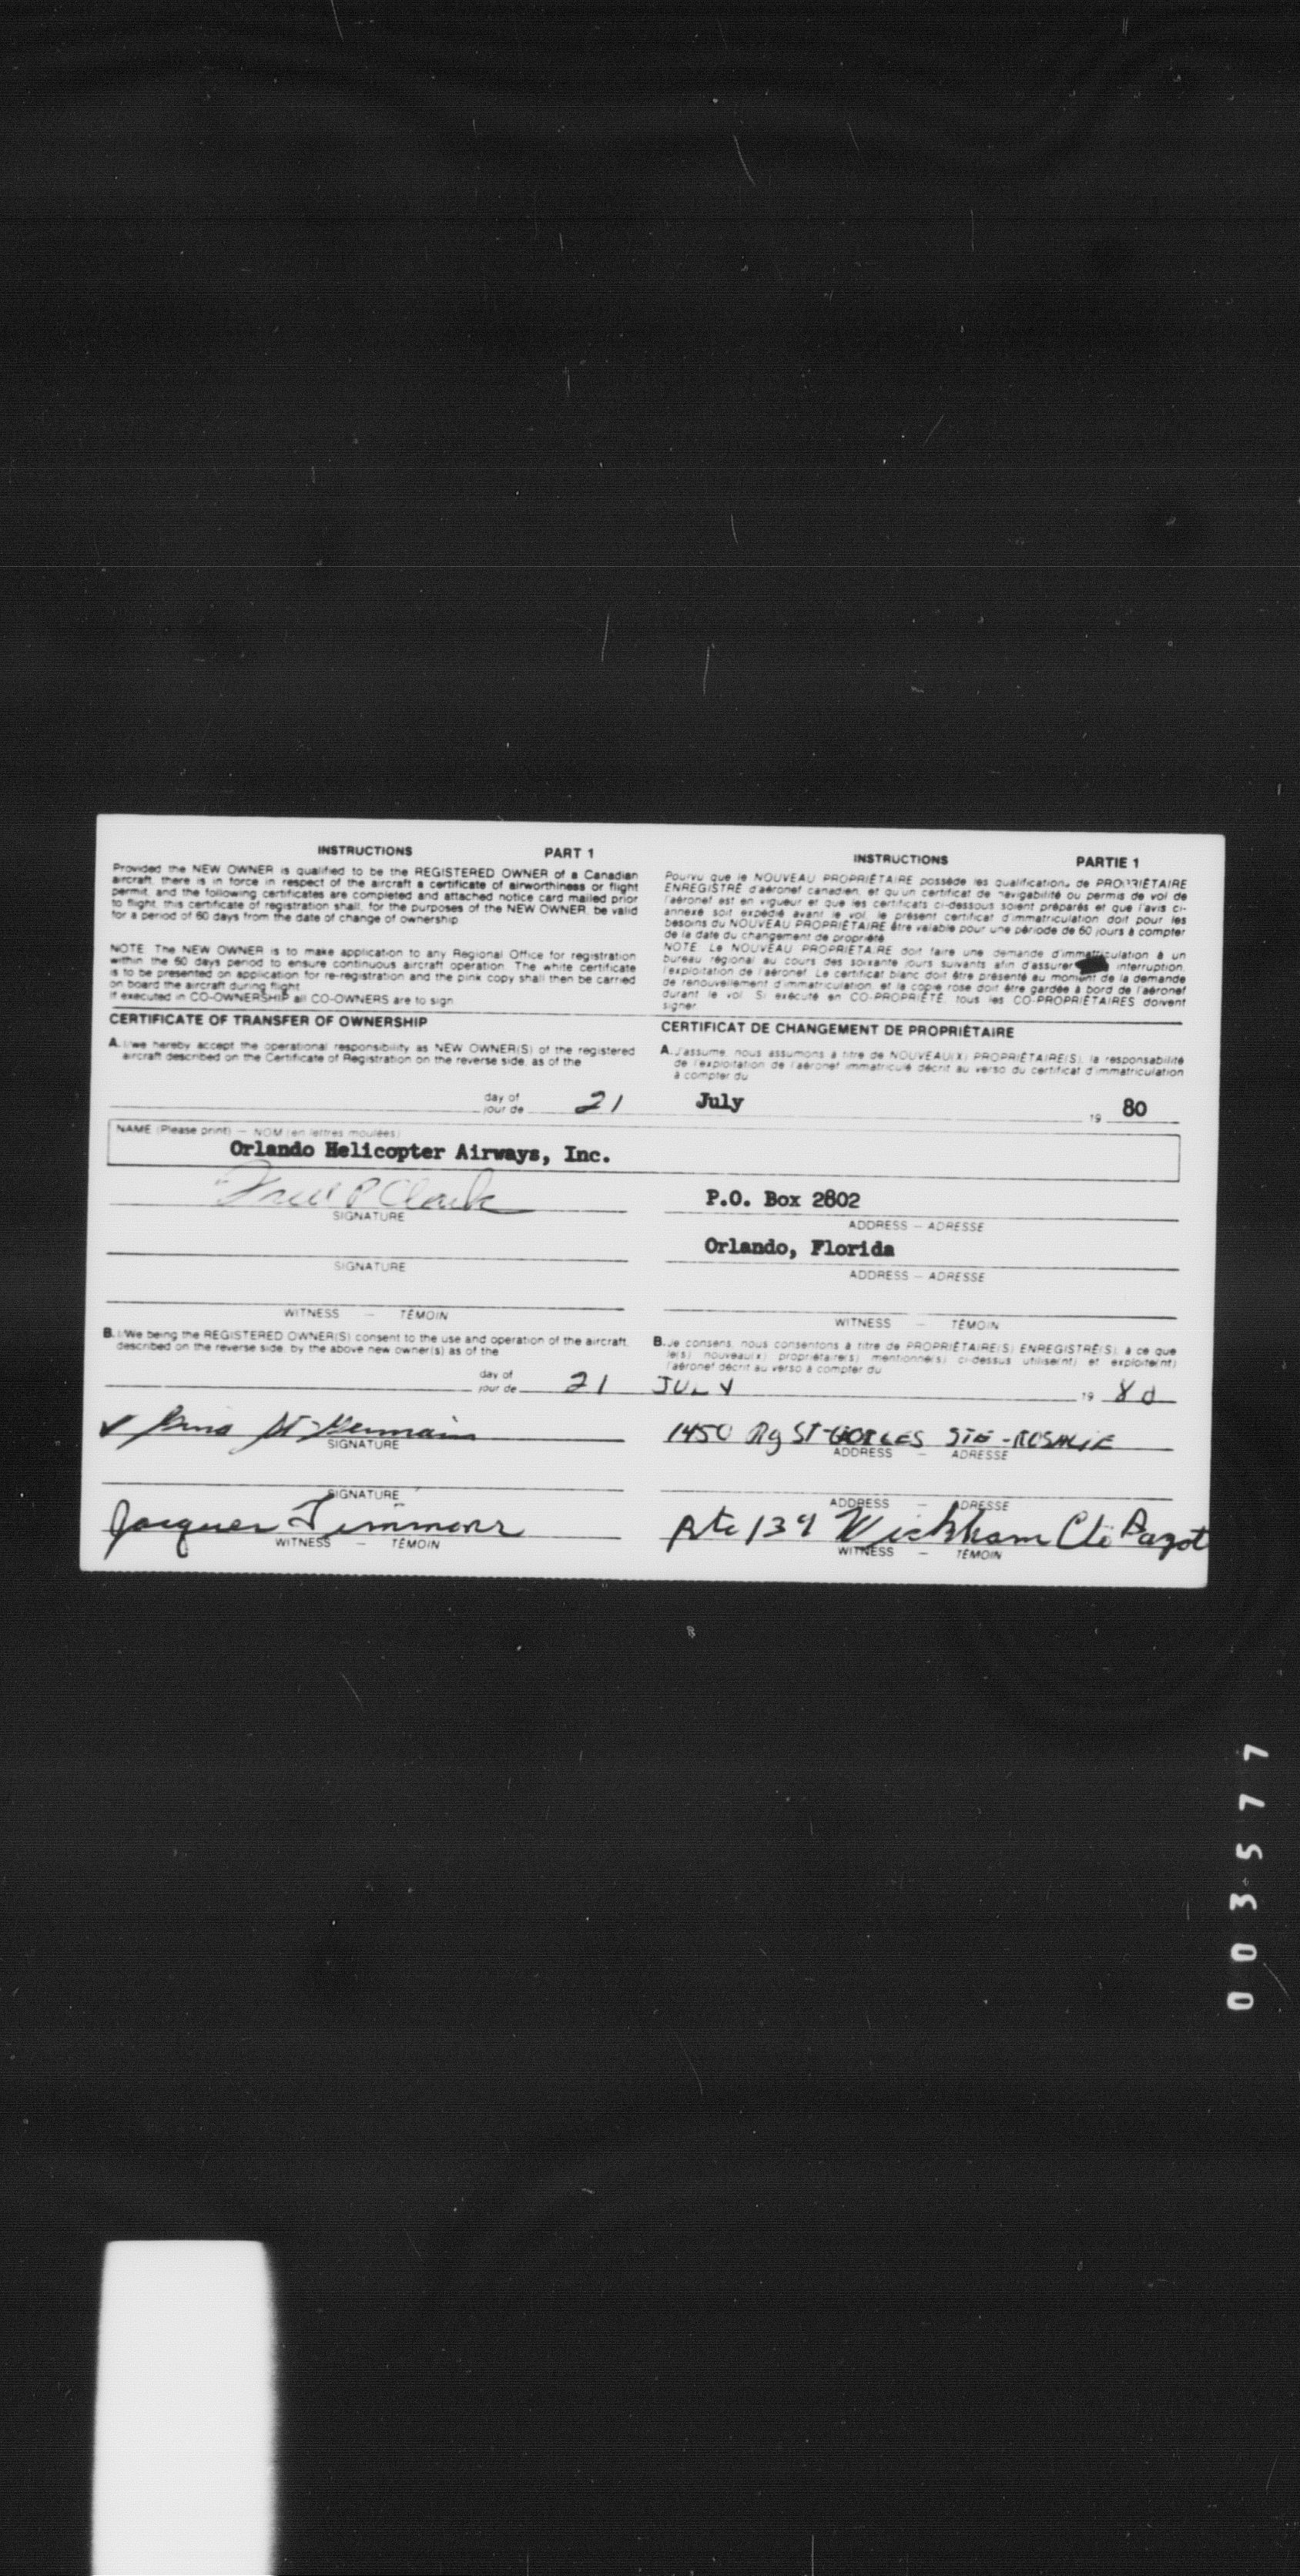 INSTRUCTIONS PART 1
Provided the NEW OWNER is qualified to be the REGISTERED OWNER of a Canadian
aircraft, there is in force in respect of the aircraft a certificate of airworthiness or flight
permit, and the following certificates are completed and attached notice card mailed prior
to flight, this certificate of registration shall, for the purposes of the NEW OWNER, be valid
for a period of 60 days from the date of change of ownership.
NOTE: The NEW OWNER is to make application to any Regional Office for registration
within the 60 days period to ensure continuous aircraft operation. The white certificate
is to be presented on application for re-registration and the pink copy shall then be carried
on board the aircraft during flight.
If executed in CO-OWNERSHIP all CO-OWNERS are to sign.
INSTRUCTIONS PARTIE 1
Pourvu que le NOUVEAU PROPRIÉTAIRE possède les qualifications de PROPRIÉTAIRE
ENREGISTRÉ d'aéronef canadien, et qu'un certificat de navigabilité ou permis de vol de
l'aéronef est en vigueur et que les certificats ci-dessous soient préparés et que l'avis ci-
annexé soit expédié avant le vol, le présent certificat d'immatriculation doit pour les
besoins du NOUVEAU PROPRIÉTAIRE être valable pour une période de 60 jours à compter
de la date du changement de propriété.
NOTE: Le NOUVEAU PROPRIÉTAIRE doit faire une demande d'immatriculation à un
bureau régional au cours des soixante jours suivants afin d'assurer interruption,
l'exploitation de l'aéronef. Le certificat blanc doit être présenté au moment de la demande
de renouvellement d'immatriculation, et la copie rose doit être gardée à bord de l'aéronef
durant le vol. Si exécuté en CO-PROPRIÉTÉ, tous les CO-PROPRIÉTAIRES doivent
signer.
CERTIFICATE OF TRANSFER OF OWNERSHIP
A. I/we hereby accept the operational responsibility as NEW OWNER(S) of the registered
aircraft described on the Certificate of Registration on the reverse side, as of the
CERTIFICAT DE CHANGEMENT DE PROPRIÉTAIRE
A. J'assume, nous assumons à titre de NOUVEAU(X) PROPRIÉTAIRE(S), la responsabilité
de l'exploitation de l'aéronef immatriculé décrit au verso du certificat d'immatriculation
à compter du
day of
jour de 21 July 19 80
NAME (Please print) — NOM (en lettres moulées)
Orlando Helicopter Airways, Inc.
P Clark P.O. Box 2802
SIGNATURE ADDRESS — ADRESSE
Orlando, Florida
SIGNATURE ADDRESS — ADRESSE
WITNESS — TÉMOIN WITNESS — TÉMOIN
B. I/We being the REGISTERED OWNER(S) consent to the use and operation of the aircraft,
described on the reverse side, by the above new owner(s) as of the
B. Je consens, nous consentons à titre de PROPRIÉTAIRE(S) ENREGISTRÉ(S), à ce que
le(s) nouveau(x) propriétaire(s) mentionné(s) ci-dessus utilise(nt) et exploite(nt)
l'aéronef décrit au verso à compter du
day of
jour de 21 JULY 19 80
St-Germain 1450 Rg ST- STE-ROSALIE
SIGNATURE ADDRESS — ADRESSE
SIGNATURE ADDRESS — ADRESSE
Jacques Timmons Rte 139 Wickham Cté Bagot
WITNESS — TÉMOIN WITNESS — TÉMOIN
003577